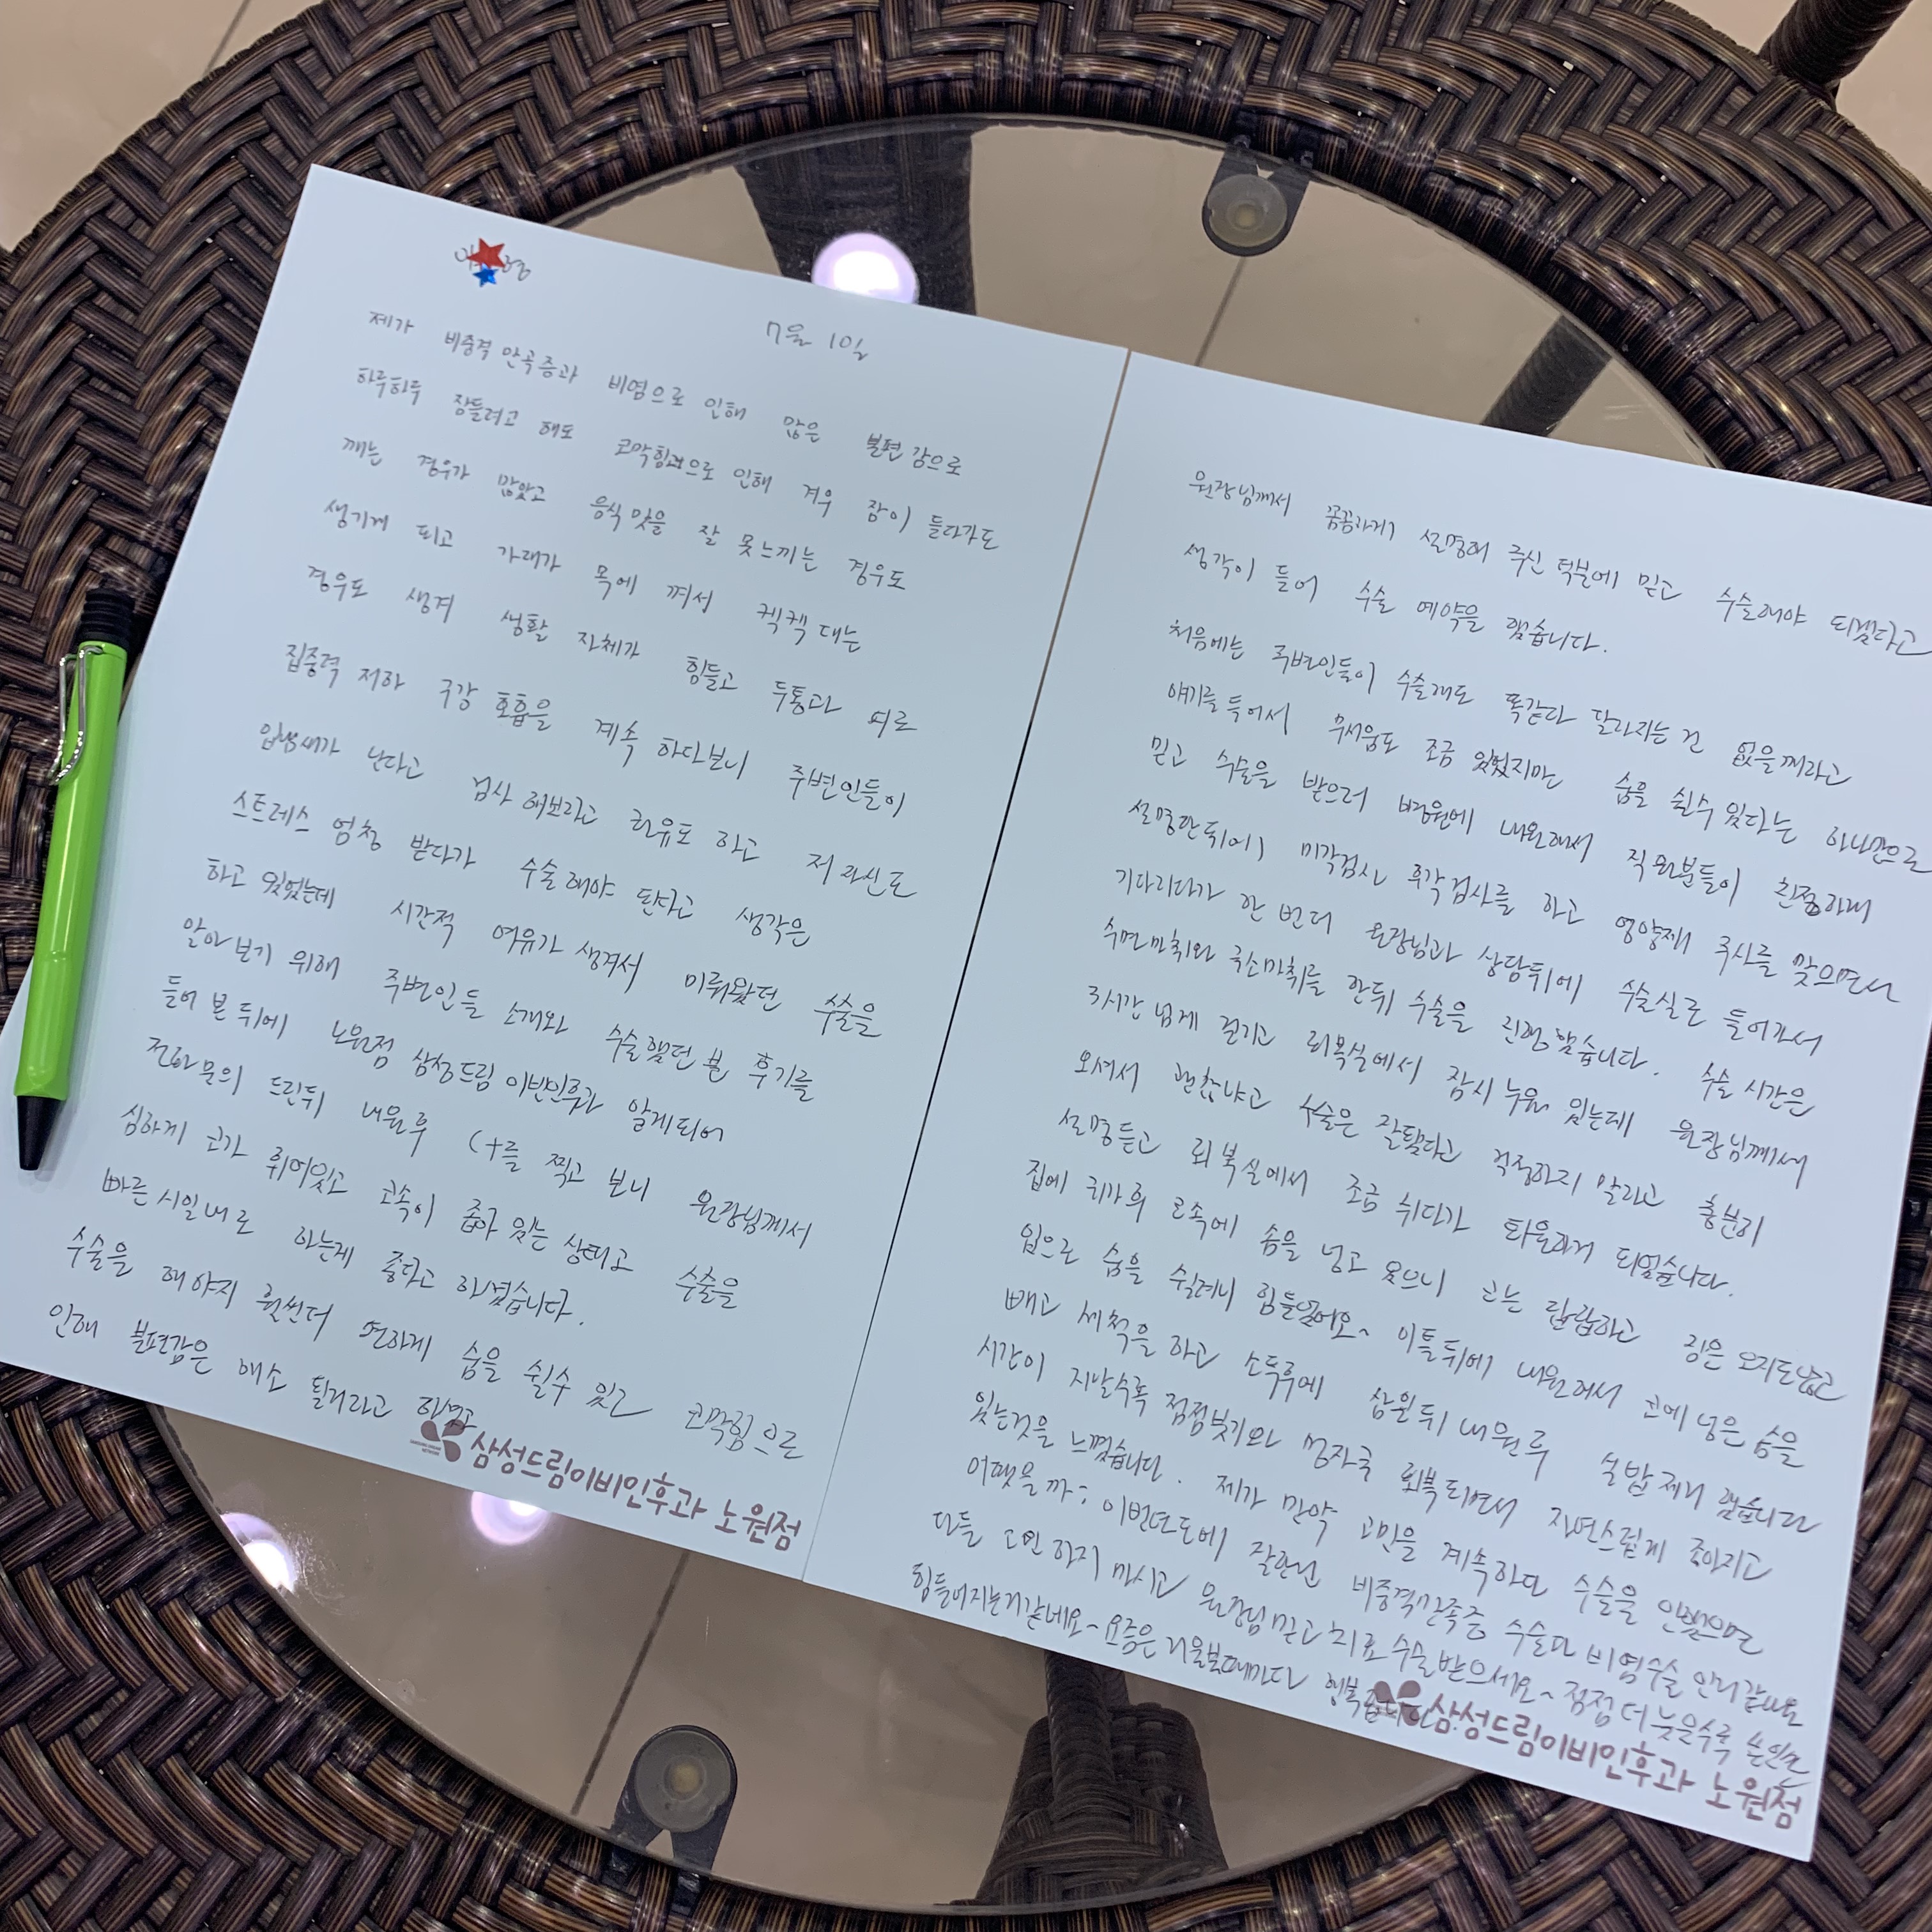 7월 10일
제가 비중격 만곡증과 비염으로 인해 많은 불편감으로
하루하루 잠들려고 해도 코막힘으로 인해 겨우 잠이 들다가도
깨는 경우가 많았고 음식 맛을 잘 못느끼는 경우도
생기게 되고 가래가 목에 껴서 켁켁 대는
경우도 생겨 생활 자체가 힘들고 두통과 피로
집중력 저하 구강 호흡을 계속 하다보니 주변인들이
입냄새가 난다고 검사 해보라고 권유도 하고 저 자신도
스트레스 엄청 받다가 수술해야 된다고 생각은
하고 있었는데 시간적 여유가 생겨서 미뤄왔던 수술을
알아보기 위해 주변인들 소개와 수술했던 분 후기를
들어 본 뒤에 노원점 삼성드림 이비인후과 알게되어
전화 문의 드린뒤 내원후 CT를 찍고 보니 원장님께서
심하게 코가 휘어있고 코속이 좁아 있는 상태고 수술을
빠른 시일내로 하는게 좋다고 하셨습니다.
수술을 해야지 훨씬더 편하게 숨을 쉴수 있고 코막힘으로
인해 불편감은 해소 될거라고 하셨고
삼성드림이비인후과 노원점
원장님께서 꼼꼼하게 설명해 주신 덕분에 믿고 수술해야 되겠다고
생각이 들어 수술 예약을 했습니다.
처음에는 주변인들이 수술해도 똑같다 달라지는 건 없을꺼라고
얘기를 들어서 무서움도 조금 있었지만 숨을 쉴수 있다는 하나만으로
믿고 수술을 받으러 병원에 내원해서 직원분들이 친절하게
설명한뒤에 미각검사 후각검사를 하고 영양제 주사를 맞으면서
기다리다가 한 번더 원장님과 상담뒤에 수술실로 들어가서
수면마취와 국소마취를 한뒤 수술을 진행했습니다. 수술 시간은
3시간 넘게 걸리고 회복실에서 잠시 누워 있는데 원장님께서
오셔서 괜찮냐고 수술은 잘됬다고 걱정하지 말라고 충분히
설명듣고 회복실에서 조금 쉬다가 퇴원하게 되었습니다.
집에 귀가후 코속에 솜을 넣고 있으니 코는 답답하고 잠은 오지도않고
입으로 숨을 쉴려니 힘들었어요~ 이틀뒤에 내원해서 코에 넣은 솜을
빼고 세척을 하고 소독후에 삼일뒤 내원후 실밥제거 했습니다
시간이 지날수록 점점붓기와 멍자국 회복되면서 자연스럽게 좋아지고
있는것을 느꼈습니다. 제가 만약 고민을 계속하다 수술을 안했으면
어땟을까; 이번년도에 잘한건 비중격만곡증 수술과 비염수술 인거같아요
다들 고민하지 마시고 원장님 믿고 치료 수술받으세요~ 점점 더 늦을수록
힘들어지는거같네요~ 요즘은 거울볼때마다 행복
삼성드림이비인후과 노원점